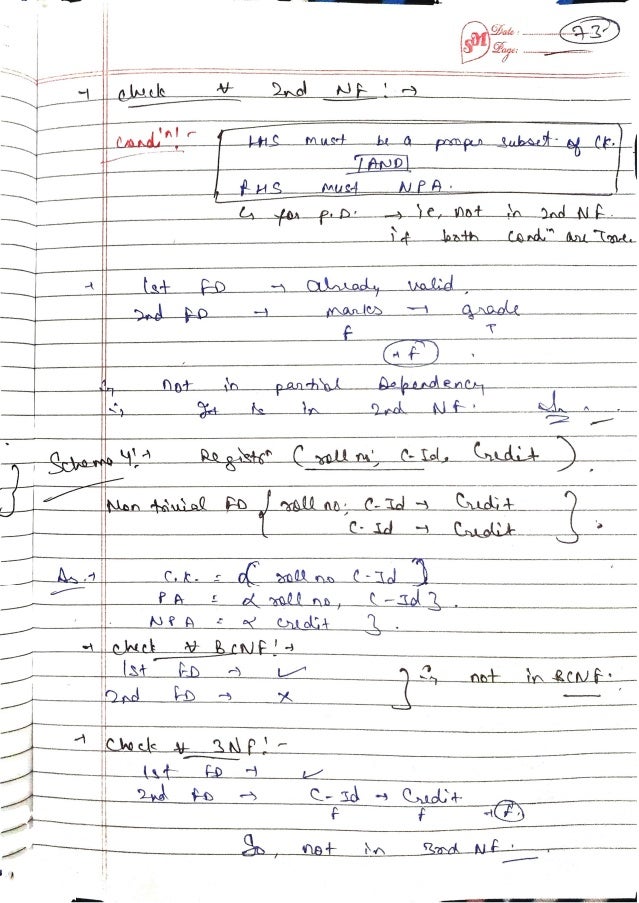 SM Date: 73
Page:
→ check ∀ 2nd NF! →
Condⁿ! - LHS must be a proper subset of CK.
[AND]
RHS must NPA.
↳ for P.D. → ie, not in 2nd NF.
if both condⁿ are True.
→ 1st FD → already valid.
2nd FD → marks → grade
f T
→ f
not in partial Dependency
∴ in 2nd NF.
Schema 4! → Registⁿ (roll no, C-Id, Credit).
Non trivial FD { roll no, C-Id → Credit
C-Id → Credit }.
As. → C.K. = { roll no C-Id }
PA = { roll no, C-Id }.
NPA = { credit }.
→ check ∀ BCNF! →
1st FD → ✓
2nd FD → ✗ } ∴ not in BCNF.
→ Check ∀ 3NF! -
1st FD → ✓
2nd FD → C-Id → Credit
f f → f.
So, not in 3rd NF.